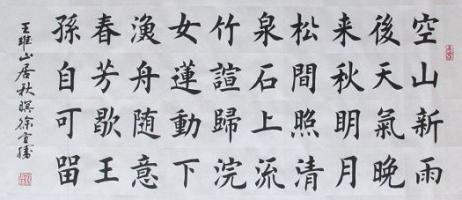 空山新雨
後天氣晚
来秋明月
松間照清
泉石上流
竹諠歸浣
女蓮動下
漁舟随意
春芳歇王
孫自可留
王維山居秋暝徐